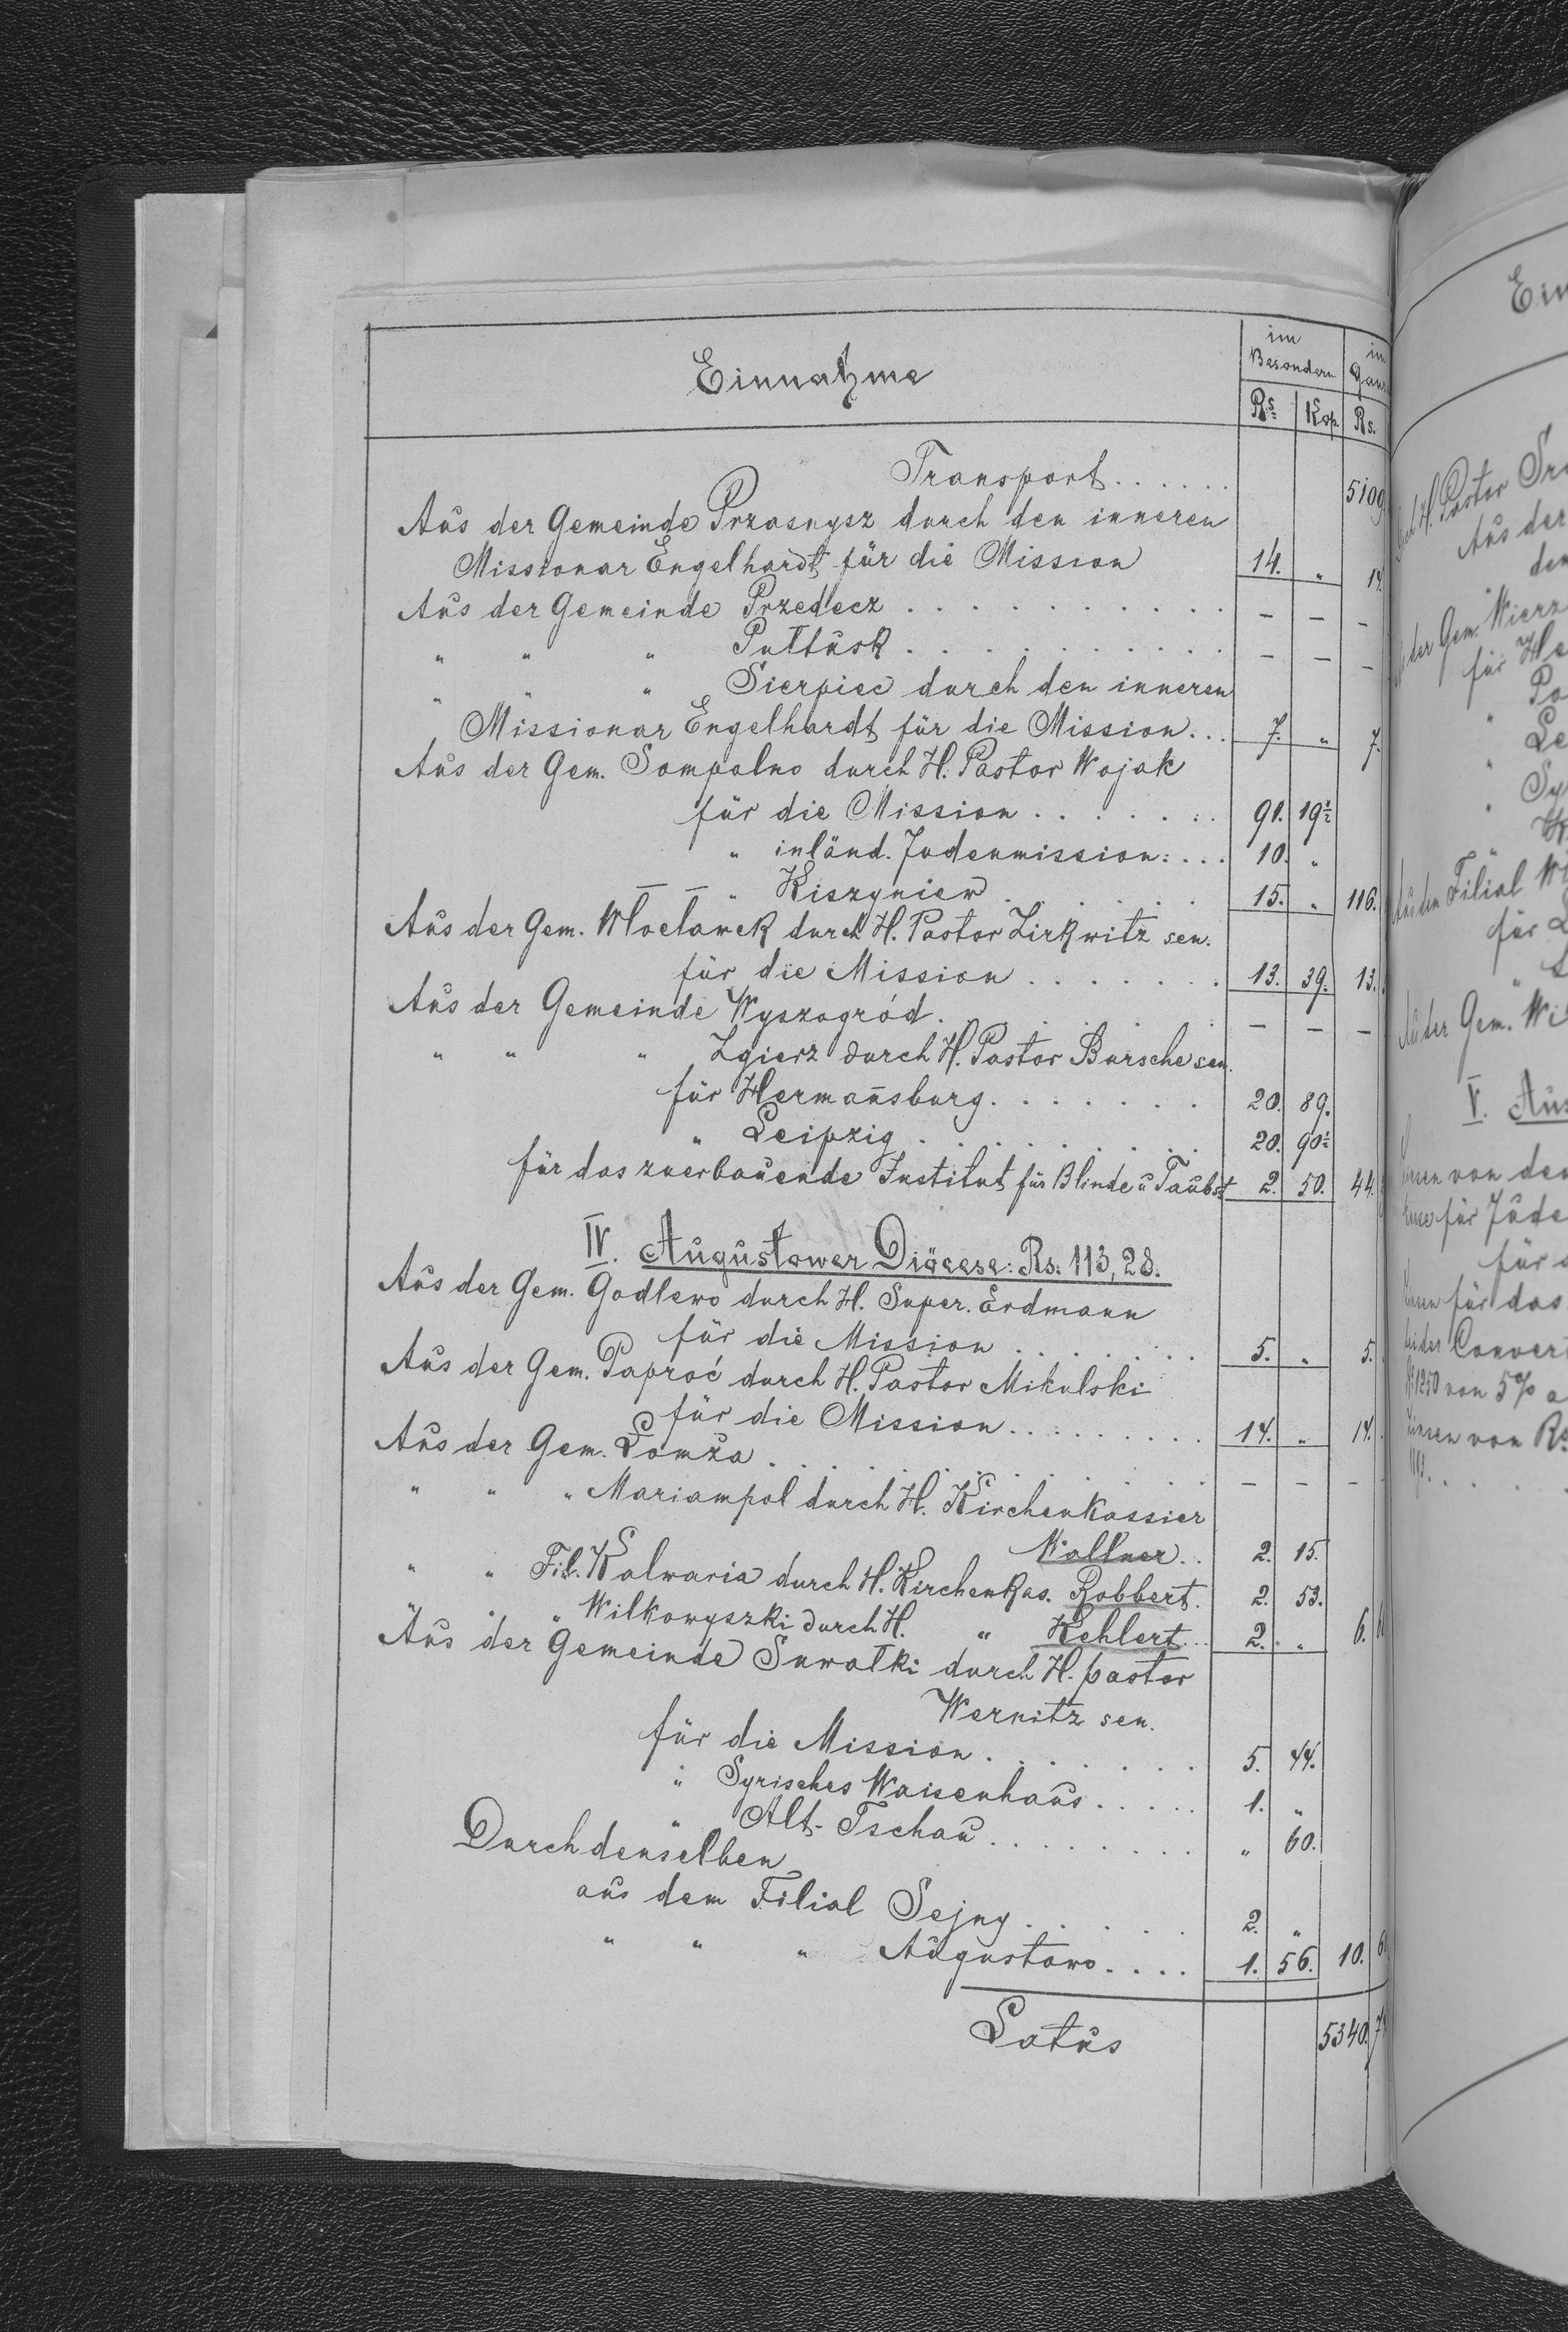 Einnahme im Besondern im
Rs. Kop. Rs.
Transport...... 5100
Aus der Gemeinde Przasnysz durch den inneren
Missionar Engelhardt für die Mission 14. " 14.
Aus der Gemeinde Przedecz............ – – –
" " " Pułtusk............ – – –
" " " Sierpiec durch den inneren
Missionar Engelhardt für die Mission... 7. " 7.
Aus der Gem. Sompolno durch H. Pastor Wojak
für die Mission....... 91. 19½
" inländ. Judenmission:... 10. "
" Kiszyniew....... 15. " 116.
Aus der Gem. Włocławek durch H. Pastor Zirkwitz sen.
für die Mission....... 13. 39. 13.
Aus der Gemeinde Wyszogród....... – – –
" " " Zgierz durch H. Pastor Bursche sen.
für Hermañsburg....... 20. 89.
" Leipzig......... 20. 90½
für das zuerbauende Institut für Blinde u Taubst 2. 50. 44.
IV. Augustower Diöcese: Rs. 113, 28.
Aus der Gem. Godlewo durch H. Super. Erdmann
für die Mission....... 5. " 5.
Aus der Gem. Paproć durch H. Pastor Mikulski
für die Mission......... 14. " 14.
Aus der Gem. Łomża......... – – –
" " " Mariampol durch H. Kirchenkassier
Wallner.. 2. 15.
" " Fil. Kalwaria durch H. Kirchenkas. Robbert. 2. 53.
" " " Wilkowyszki durch H. " Kehlert... 2. " 6.
Aus der Gemeinde Suwałki durch H. pastor
Wernitz sen.
für die Mission....... 5. 44.
" Syrisches Waisenhaus..... 1. "
" Alt-Tschau......... " 60.
Durch denselben
aus dem Filial Sejny...... 2. "
" " " Augustowo.... 1. 56. 10.
Latus 5340.
Ein
H. Pastor
Aus der
der Gem.
für
"
"
"
Filial
für
der Gem.
V.
von den
für Jude
für das
Conver
1250 von 5%
von Rs